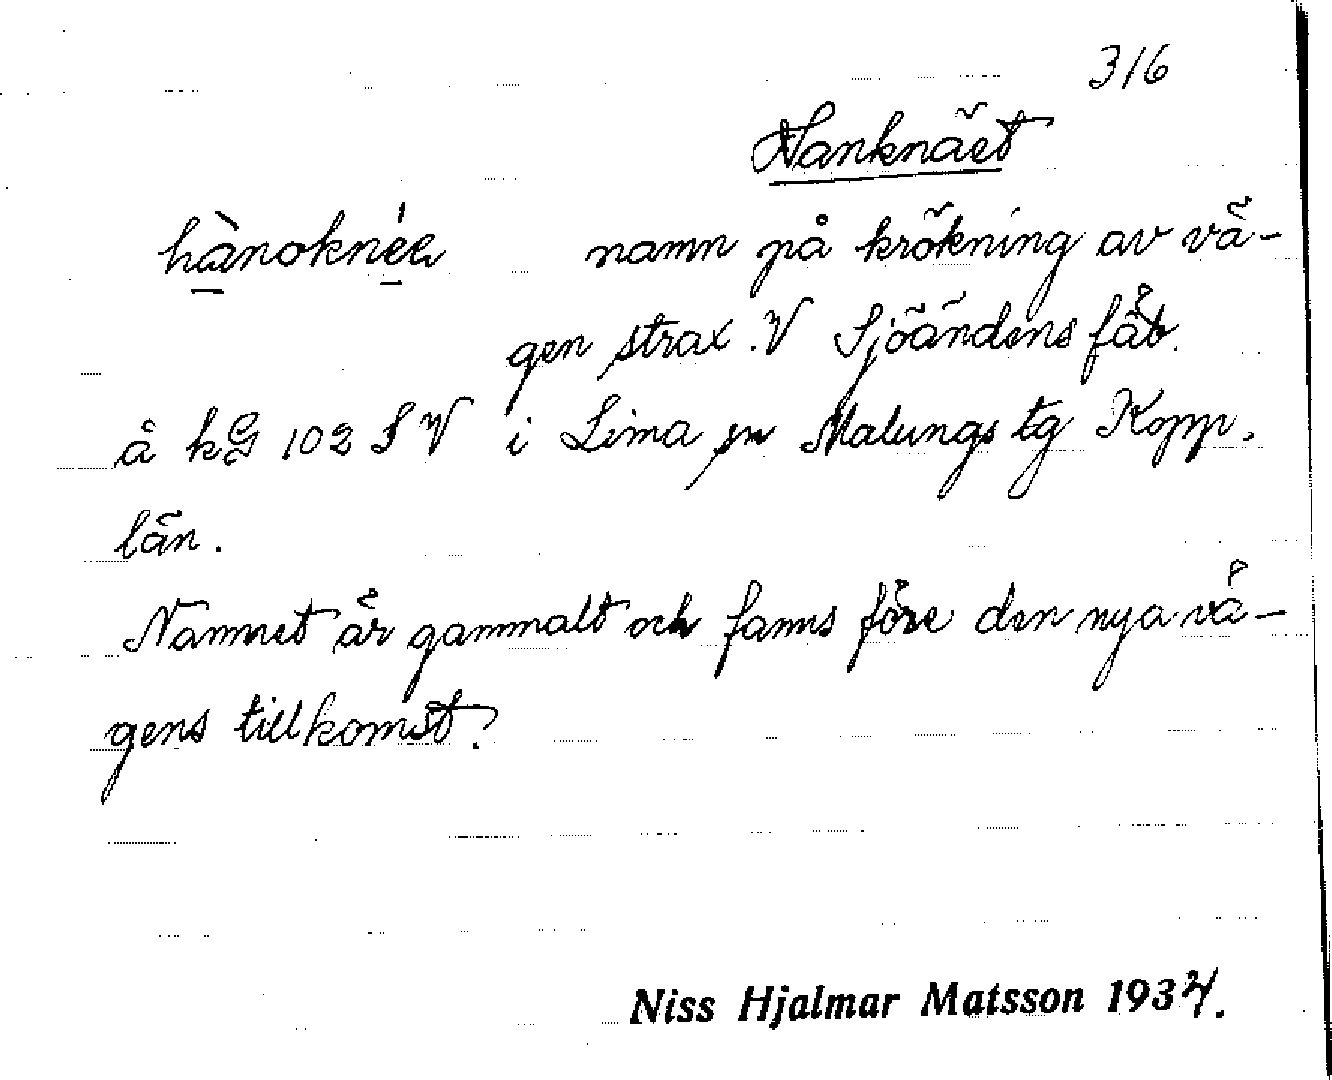 316
Hanknäet
hànoknéa namn på krökning av vä-
gen strax V Sjöändens fäb.
å kG 102 S V i Lima sn Malungs tg Kopp.
län.
Namnet är gammalt och fanns före den nya vä-
gens tillkomst?
Niss Hjalmar Matsson 193